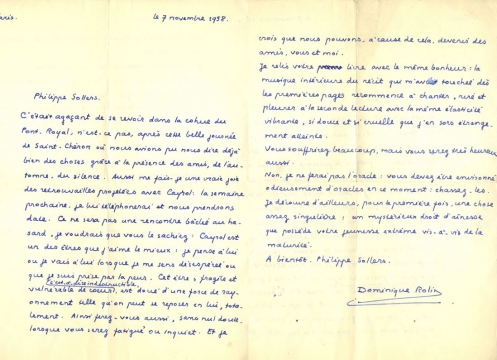 Paris.
le 7 novembre 1958.
Philippe Sollers.
C'était agaçant de se revoir dans la cohue du
Pont. Royal, n'est-ce pas, après cette belle journée
de Saint-Chéron où nous avions pu nous dire déjà
bien des choses grâce à la présence des amis, de l'au-
tomne, du silence. Aussi me fais-je une vraie joie
des retrouvailles projetées avec Cayrol: la semaine
prochaine, je lui téléphonerai et nous prendrons
date. Ce ne sera pas une rencontre bâclée au ha-
sard, je voudrais que vous le sachiez: Cayrol est
un des êtres que j'aime le mieux: je pense à lui
ou je vais à lui lorsque je me sens désespérée ou
que je suis prise par la peur. Cet être, fragile et
c'est-à-dire indestructible,
vulnérable de cœur, est doué d'une force de ray-
onnement telle qu'on peut se reposer en lui, tota-
lement. Ainsi ferez-vous aussi, sans nul doute,
lorsque vous serez fatigué ou inquiet. Et je
crois que nous pouvons, à cause de cela, devenir des
amis, vous et moi.
Je relis votre livre avec le même bonheur: la
musique intérieure du récit qui m'avait touchée dès
les premières pages recommence à chanter, rire et
pleurer à la seconde lecture avec la même élasticité
vibrante, si douce et si cruelle que j'en sors étrange-
ment atteinte.
Vous souffrirez beaucoup, mais vous serez très heureux
aussi.
Non, je ne ferai pas l'oracle: vous devez être environné
odieusement d'oracles en ce moment: chassez-les.
Je découvre d'ailleurs, pour la première fois, une chose
assez singulière: un mystérieux droit d'aînesse
que possède votre jeunesse extrême vis-à-vis de la
maturité.
A bientôt. Philippe Sollers.
Dominique Rolin